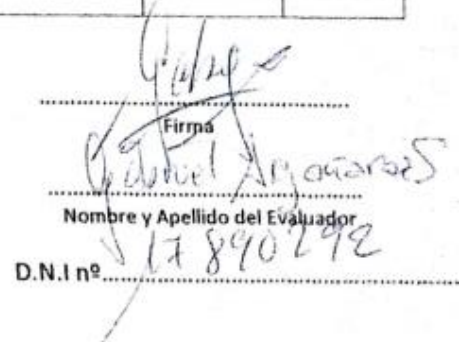 Firma
Gabriel Argañaras
Nombre y Apellido del Evaluador
D.N.I nº 17890292